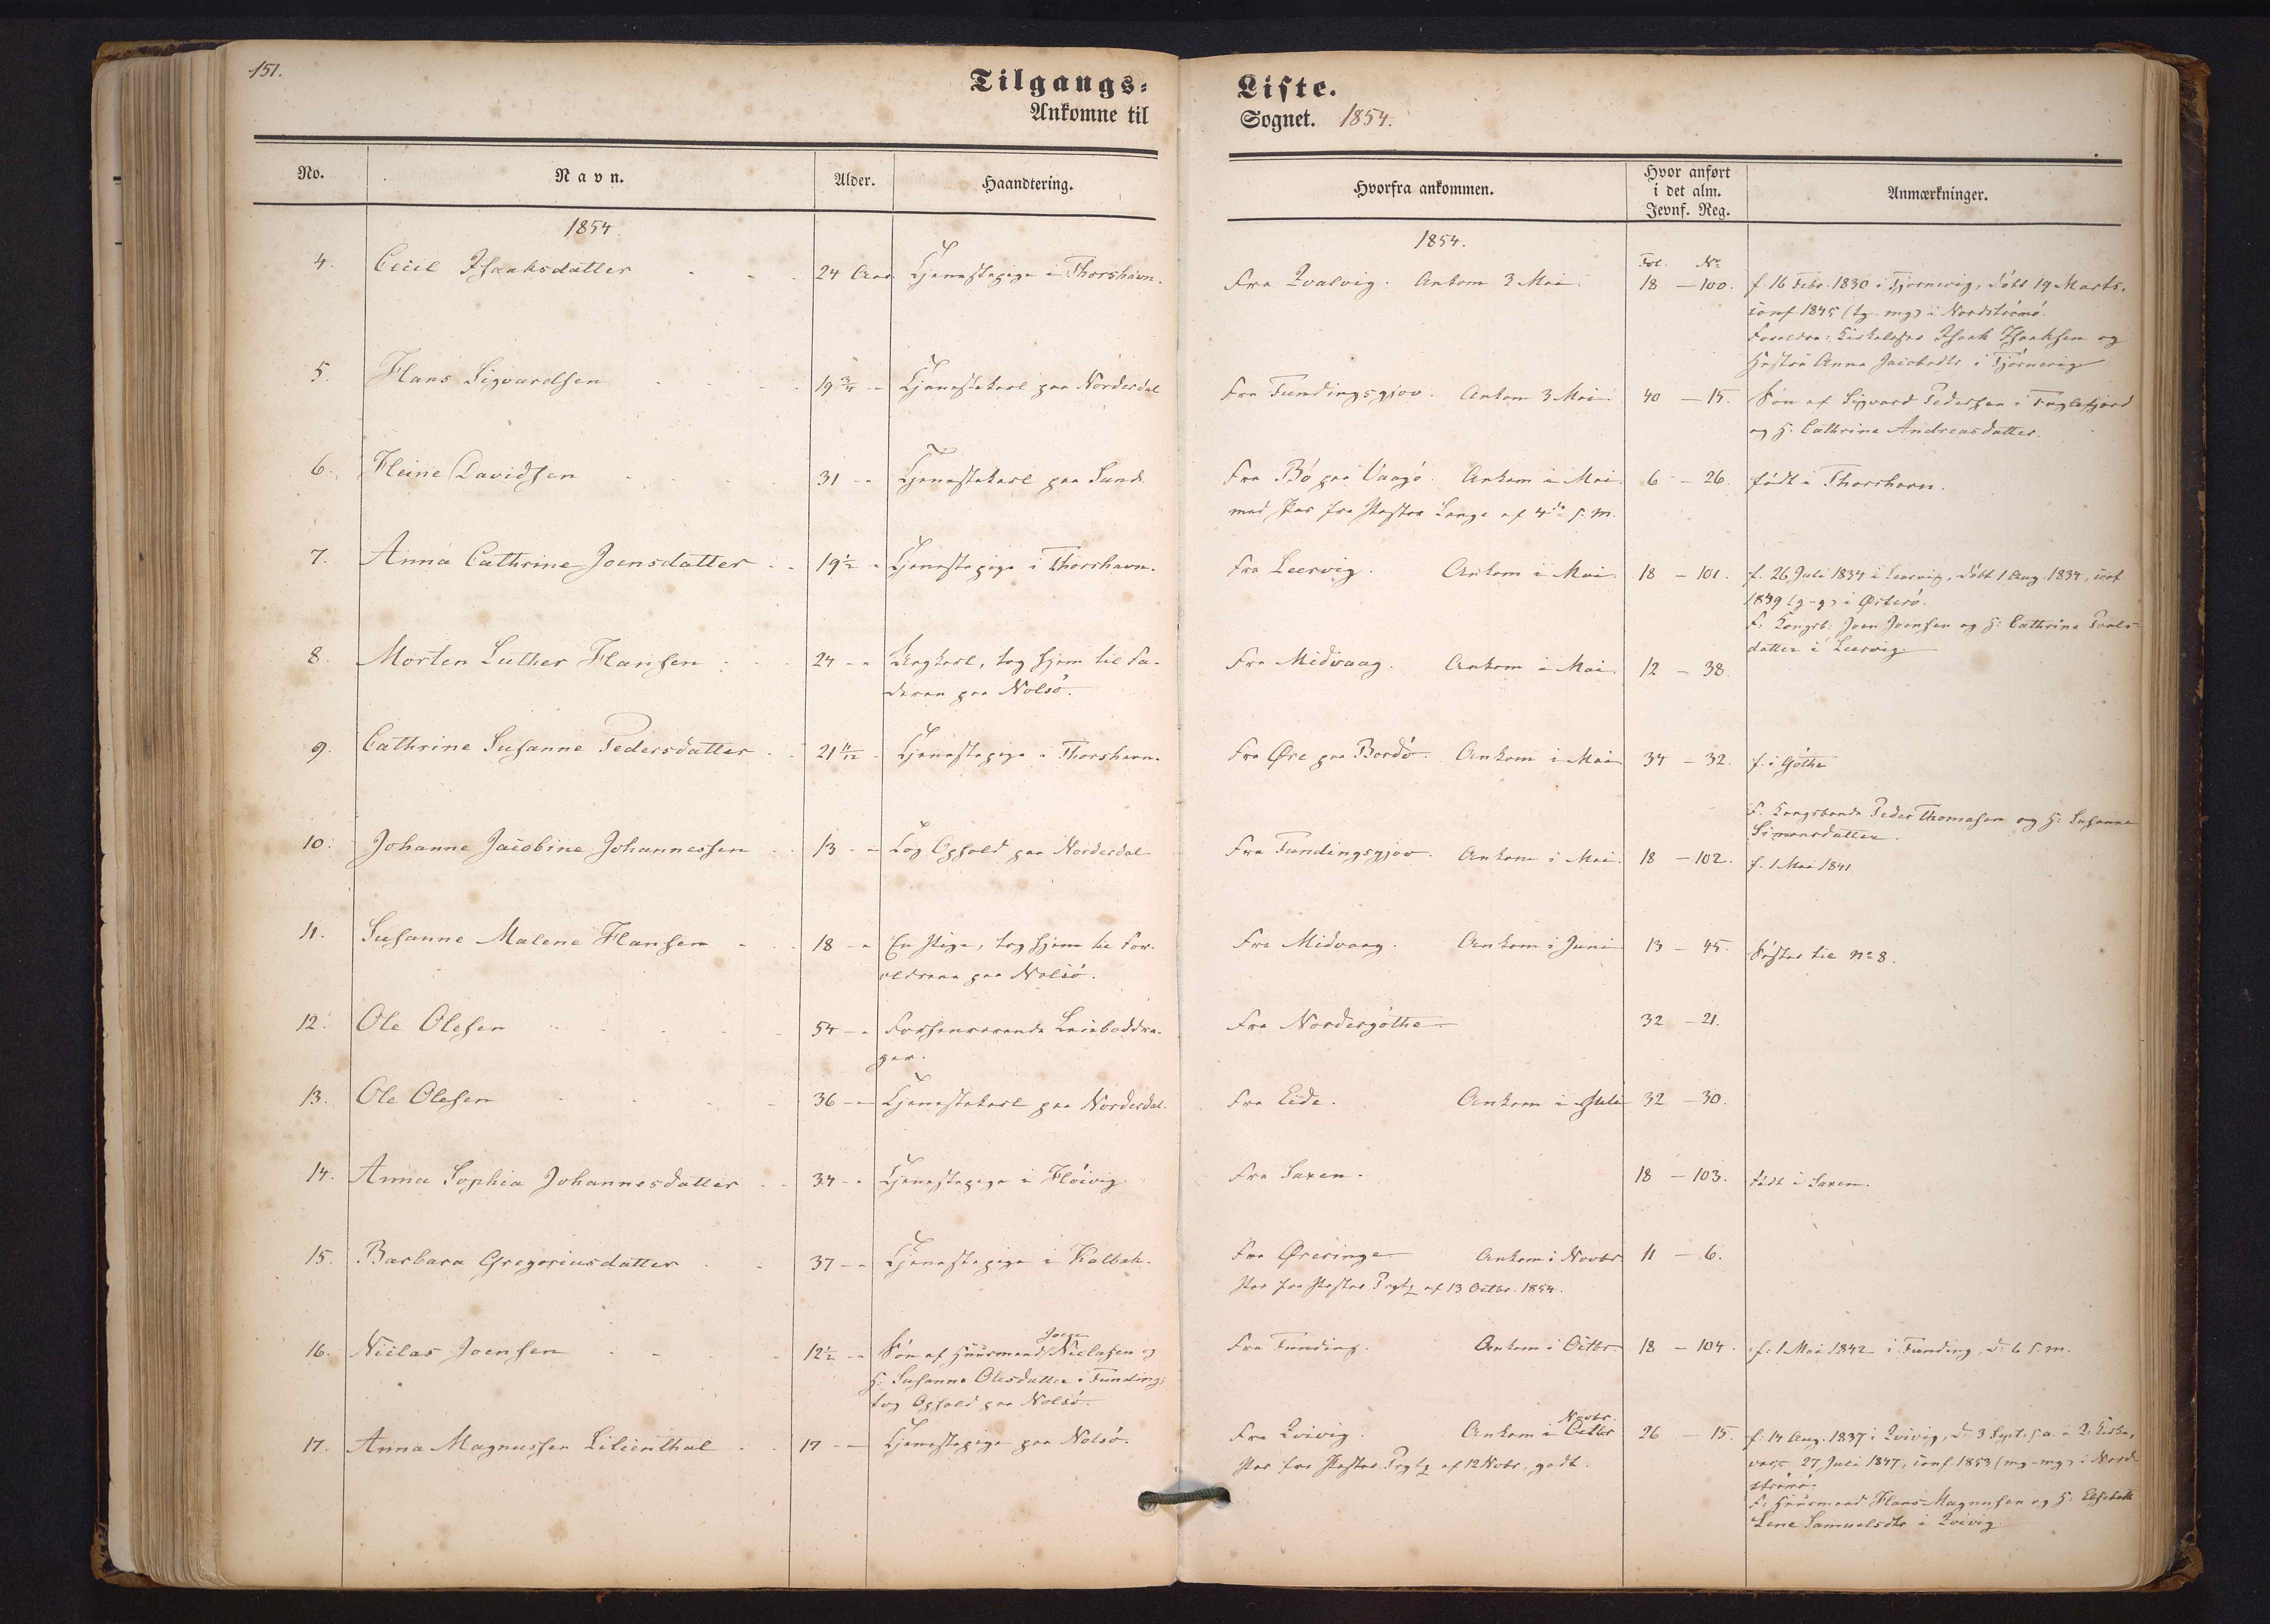 151.
Tilgangs=
Ankomne til
Liste.
Sognet. 1854.
No.
Navn.
Alder.
Haandtering.
Hvorfra ankommen.
Hvor anført
i det alm.
Jevnf. Reg.
Anmærkninger.
1854.
1854.
Fol. No
4. Cecil Isaaksdatter 24 Aar Tjenestepige i Thorshavn. Fra Qvalvig. Ankom 3 Mai. 18 – 100. f. 16 Febr. 1830 i Tjörnevig, döbt 19 Marts,
conf. 1845 (tg-mg) i Nordströmö.
Forældre: Isaak Isaaksen og
Hustru Anna Jacobsdtr i Tjörnevig
5. Hans Sigvardsen 19 3/4 – " Tjenestekarl paa Norderdal Fra Fundingsgjov. Ankom 3 Mai. 40 – 15. Sön af Sigvard Pedersen i Fuglefjord
og H. Cathrine Andreasdatter.
6. Heine Davidsen 31 – " Tjenestekarl paa Sund. Fra Bö paa Vaagö. Ankom i Mai. 6 – 26. födt i Thorshavn.
med Pas fra Pastor Lange af 4de s. M.
7. Anna Cathrine Joensdatter 19 1/2 – " Tjenestepige i Thorshavn. Fra Leervig. Ankom i Mai. 18 – 101. f. 26 Juli 1834 i Leervig, döbt 1 Aug. 1834, conf.
1849 (g-g) i Østerö.
F. Kongsb. Joen Joensen og H. Cathrine Pouls-
datter i Leervig.
8. Morten Luther Hansen 24 – " Ungkarl, tog hjem til Fa-
deren paa Nolsö. Fra Midvaag. Ankom i Mai. 12 – 38.
9. Cathrine Susanne Pedersdatter 21 11/12 Tjenestepige i Thorshavn. Fra Øre paa Bordö. Ankom i Mai 34 – 32. f. i Göthe
F. Kongsbonde Peder Thomasen og H. Susanne
Simonsdatter.
10. Johanne Jacobine Johannessen 13 – " Tog Ophold paa Norderdal Fra Fundingsgjov. Ankom i Mai. 18 – 102. f. 1 Mai 1841
11. Susanne Malene Hansen 18 – " En Pige, tog hjem til For-
ældrene paa Nolsö. Fra Midvaag. Ankom i Juni 13 – 45. Söster til No 8.
12. Ole Olesen 54 – " Forhenværende
ger. Fra Nordergöthe 32 – 21.
13. Ole Olesen 36 – " Tjenestekarl paa Norderdal. Fra Eide. Ankom i Juli 32 – 30.
14. Anna Sophia Johannesdatter 34 – " Tjenestepige i Höivig Fra Saxen. 18 – 103. födt i Saxen.
15. Barbara Gregoriusdatter 37 – " Tjenestepige i Kalbak. Fra Øreringe Ankom i Novbr 11 – 6.
Pas fra Pastor af 13 Octbr. 1854.
16. Niclas Joensen 12 1/2 – " Sön af Huusmand Joen Niclasen og
H. Susanne Olesdatter i Funding,
tog Ophold paa Nolsö. Fra Funding. Ankom i Octbr. 18 – 104. f. 1 Mai 1842 i Funding, d. 6 s. M.
17. Anna Magnussen Lilienthal 17 – " Tjenestepige paa Nolsö. Fra Qvivig. Ankom i Octbr Novbr. 26 – 15. f. 14 Aug. 1837 i Qvivig, d. 3 Sept. s. A. i Q. Kirke,
Pas fra Pastor af 12 Nobr, godt.
vacc. 27 Juli 1847, conf. 1853 (mg-mg) i Nord-
strömö.
F. Huusmand Hans Magnusen og H. Elsebeth
Lene Samuelsdtr i Qvivig.